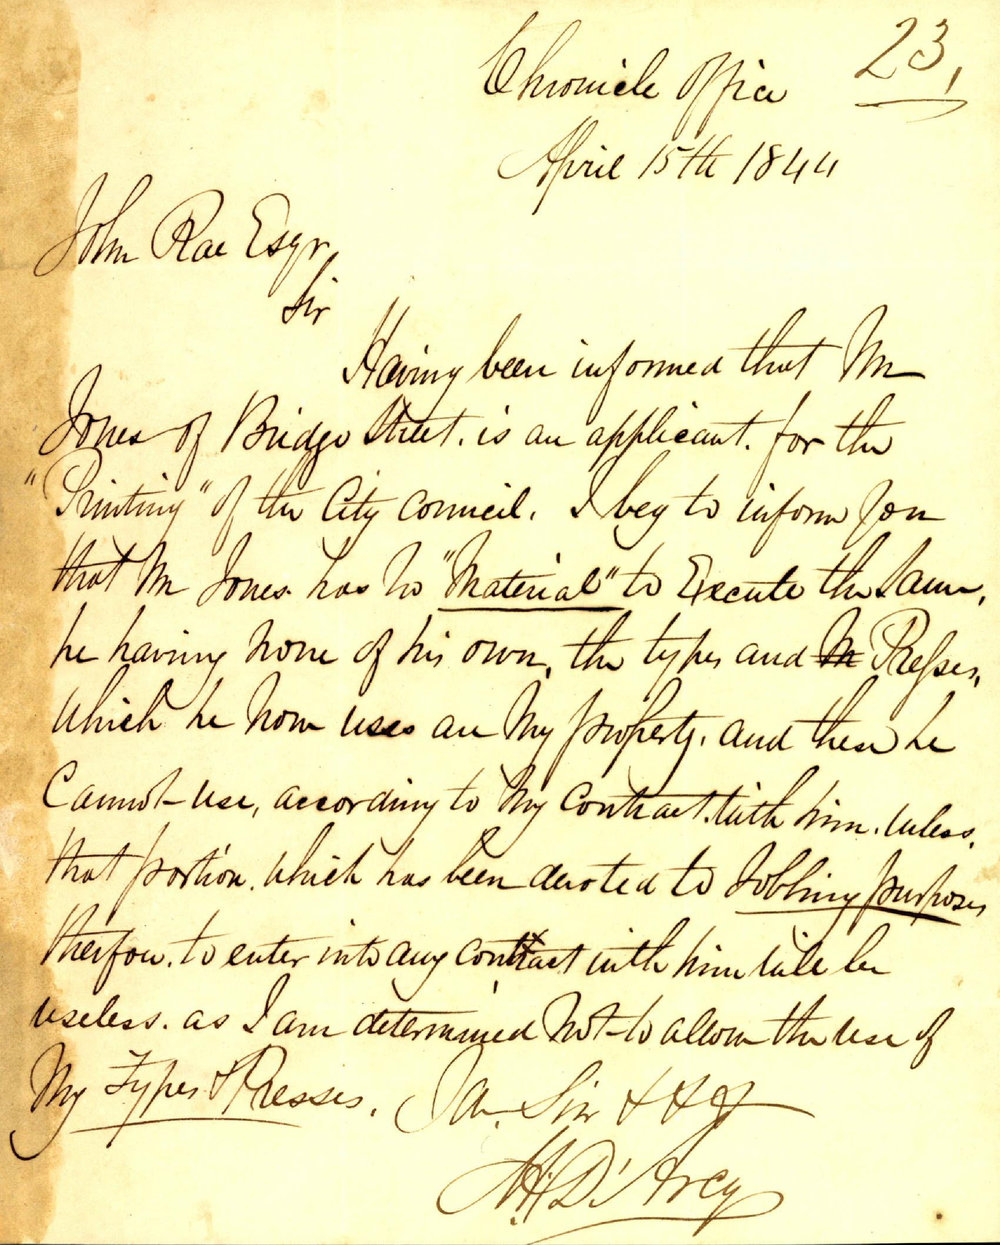 23,
Chronicle Office
April 15th 1844
John Rae Esqr,
Sir
Having been informed that Mr
Jones of Bridge Street. is an applicant. for the
"Printing" of the City Council. I beg to inform you
that Mr Jones. has no "Material" to Execute the same,
he having none of his own, the types and M Presses,
which he now uses are My property. and these he
Cannot use, according to My Contract. with him. unless.
that portion. which has been devoted to Jobbing purposes
therfore. to enter into any contract with him will be
useless. as I am determined Not to allow the use of
My Types & Presses. I Am. Sir & &
A.H. D'Arcy